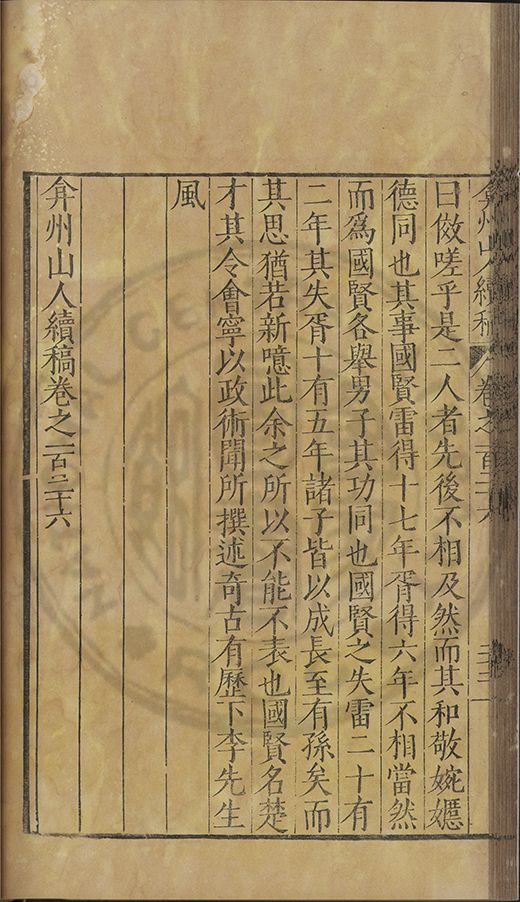 弇州山人續稿 卷之一百二十六
曰倣嗟乎是二人者先後不相及然而其和敬婉嫕
德同也其事國賢雷得十七年胥得六年不相當然
而爲國賢各舉男子其功同也國賢之失雷二十有
二年其失胥十有五年諸子皆以成長至有孫矣而
其思猶若新噫此余之所以不能不表也國賢名楚
才其令會寧以政術聞所撰述奇古有歷下李先生
風
弇州山人續稿卷之一百二十六